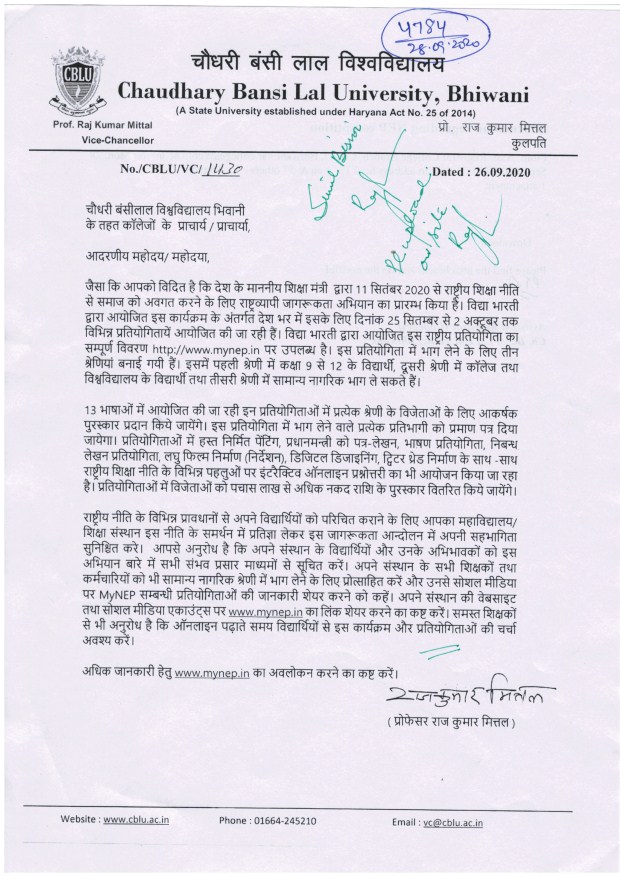 4784
28.09.2020
CBLU
चौधरी बंसी लाल विश्वविद्यालय
Chaudhary Bansi Lal University, Bhiwani
(A State University established under Haryana Act No. 25 of 2014)
Prof. Raj Kumar Mittal
Vice-Chancellor
प्रो. राज कुमार मित्तल
कुलपति
No./CBLU/VC/1430
Dated : 26.09.2020
Pl upload
on site
चौधरी बंसीलाल विश्वविद्यालय भिवानी
के तहत कॉलेजों के प्राचार्य / प्राचार्या,
आदरणीय महोदय/ महोदया,
जैसा कि आपको विदित है कि देश के माननीय शिक्षा मंत्री द्वारा 11 सितंबर 2020 से राष्ट्रीय शिक्षा नीति
से समाज को अवगत करने के लिए राष्ट्रव्यापी जागरूकता अभियान का प्रारम्भ किया है। विद्या भारती
द्वारा आयोजित इस कार्यक्रम के अंतर्गत देश भर में इसके लिए दिनांक 25 सितम्बर से 2 अक्टूबर तक
विभिन्न प्रतियोगितायें आयोजित की जा रही हैं। विद्या भारती द्वारा आयोजित इस राष्ट्रीय प्रतियोगिता का
सम्पूर्ण विवरण http://www.mynep.in पर उपलब्ध है। इस प्रतियोगिता में भाग लेने के लिए तीन
श्रेणियां बनाई गयी हैं। इसमें पहली श्रेणी में कक्षा 9 से 12 के विद्यार्थी, दूसरी श्रेणी में कॉलेज तथा
विश्वविद्यालय के विद्यार्थी तथा तीसरी श्रेणी में सामान्य नागरिक भाग ले सकते हैं।
13 भाषाओं में आयोजित की जा रही इन प्रतियोगिताओं में प्रत्येक श्रेणी के विजेताओं के लिए आकर्षक
पुरस्कार प्रदान किये जायेंगे। इस प्रतियोगिता में भाग लेने वाले प्रत्येक प्रतिभागी को प्रमाण पत्र दिया
जायेगा। प्रतियोगिताओं में हस्त निर्मित पेंटिंग, प्रधानमन्त्री को पत्र-लेखन, भाषण प्रतियोगिता, निबन्ध
लेखन प्रतियोगिता, लघु फिल्म निर्माण (निर्देशन), डिजिटल डिजाइनिंग, ट्विटर थ्रेड निर्माण के साथ -साथ
राष्ट्रीय शिक्षा नीति के विभिन्न पहलुओं पर इंटरैक्टिव ऑनलाइन प्रश्नोत्तरी का भी आयोजन किया जा रहा
है। प्रतियोगिताओं में विजेताओं को पचास लाख से अधिक नकद राशि के पुरस्कार वितरित किये जायेंगे।
राष्ट्रीय नीति के विभिन्न प्रावधानों से अपने विद्यार्थियों को परिचित कराने के लिए आपका महाविद्यालय/
शिक्षा संस्थान इस नीति के समर्थन में प्रतिज्ञा लेकर इस जागरूकता आन्दोलन में अपनी सहभागिता
सुनिश्चित करे। आपसे अनुरोध है कि अपने संस्थान के विद्यार्थियों और उनके अभिभावकों को इस
अभियान बारे में सभी संभव प्रसार माध्यमों से सूचित करें। अपने संस्थान के सभी शिक्षकों तथा
कर्मचारियों को भी सामान्य नागरिक श्रेणी में भाग लेने के लिए प्रोत्साहित करें और उनसे सोशल मीडिया
पर MyNEP सम्बन्धी प्रतियोगिताओं की जानकारी शेयर करने को कहें। अपने संस्थान की वेबसाइट
तथा सोशल मीडिया एकाउंट्स पर www.mynep.in का लिंक शेयर करने का कष्ट करें। समस्त शिक्षकों
से भी अनुरोध है कि ऑनलाइन पढ़ाते समय विद्यार्थियों से इस कार्यक्रम और प्रतियोगिताओं की चर्चा
अवश्य करें।
अधिक जानकारी हेतु www.mynep.in का अवलोकन करने का कष्ट करें।
राजकुमार मित्तल
( प्रोफेसर राज कुमार मित्तल )
Website : www.cblu.ac.in
Phone : 01664-245210
Email : vc@cblu.ac.in